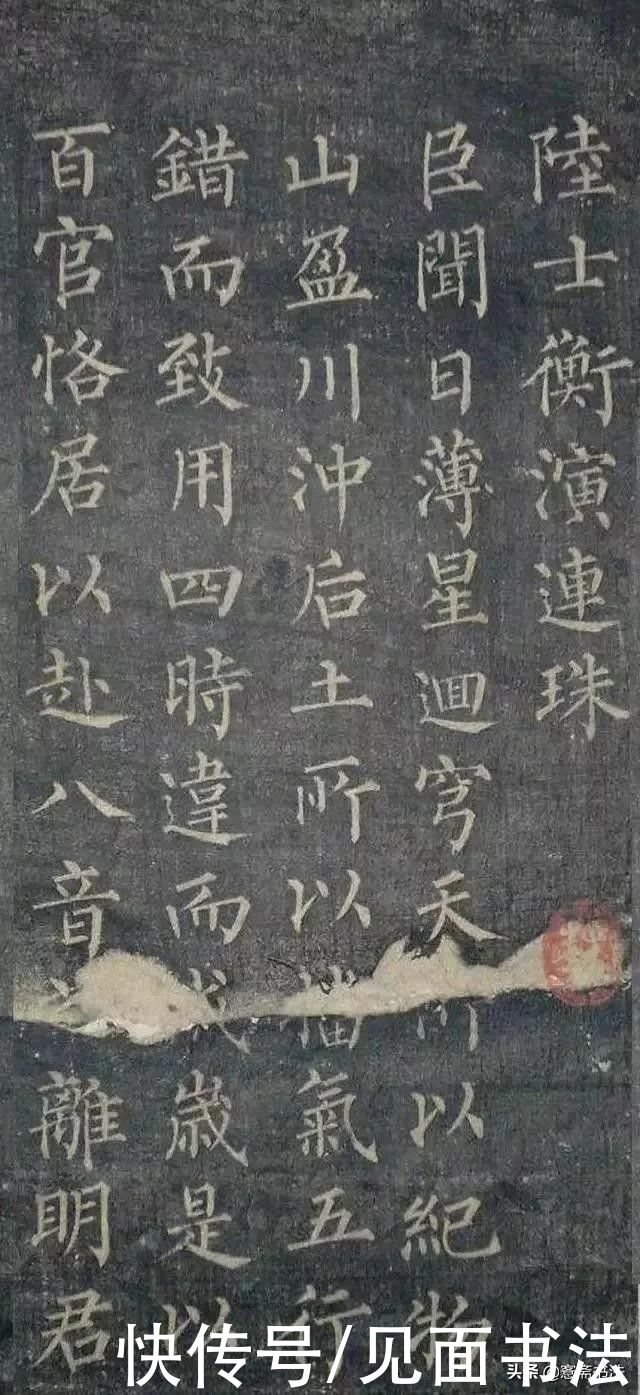 陸士衡演連珠
臣聞日薄星迴穹天所以紀物
山盈川沖后土所以播氣五行
錯而致用四時違而成歲是以
百官恪居以赴八音之離明君
快传号/见面书法
头条@愙斋书法